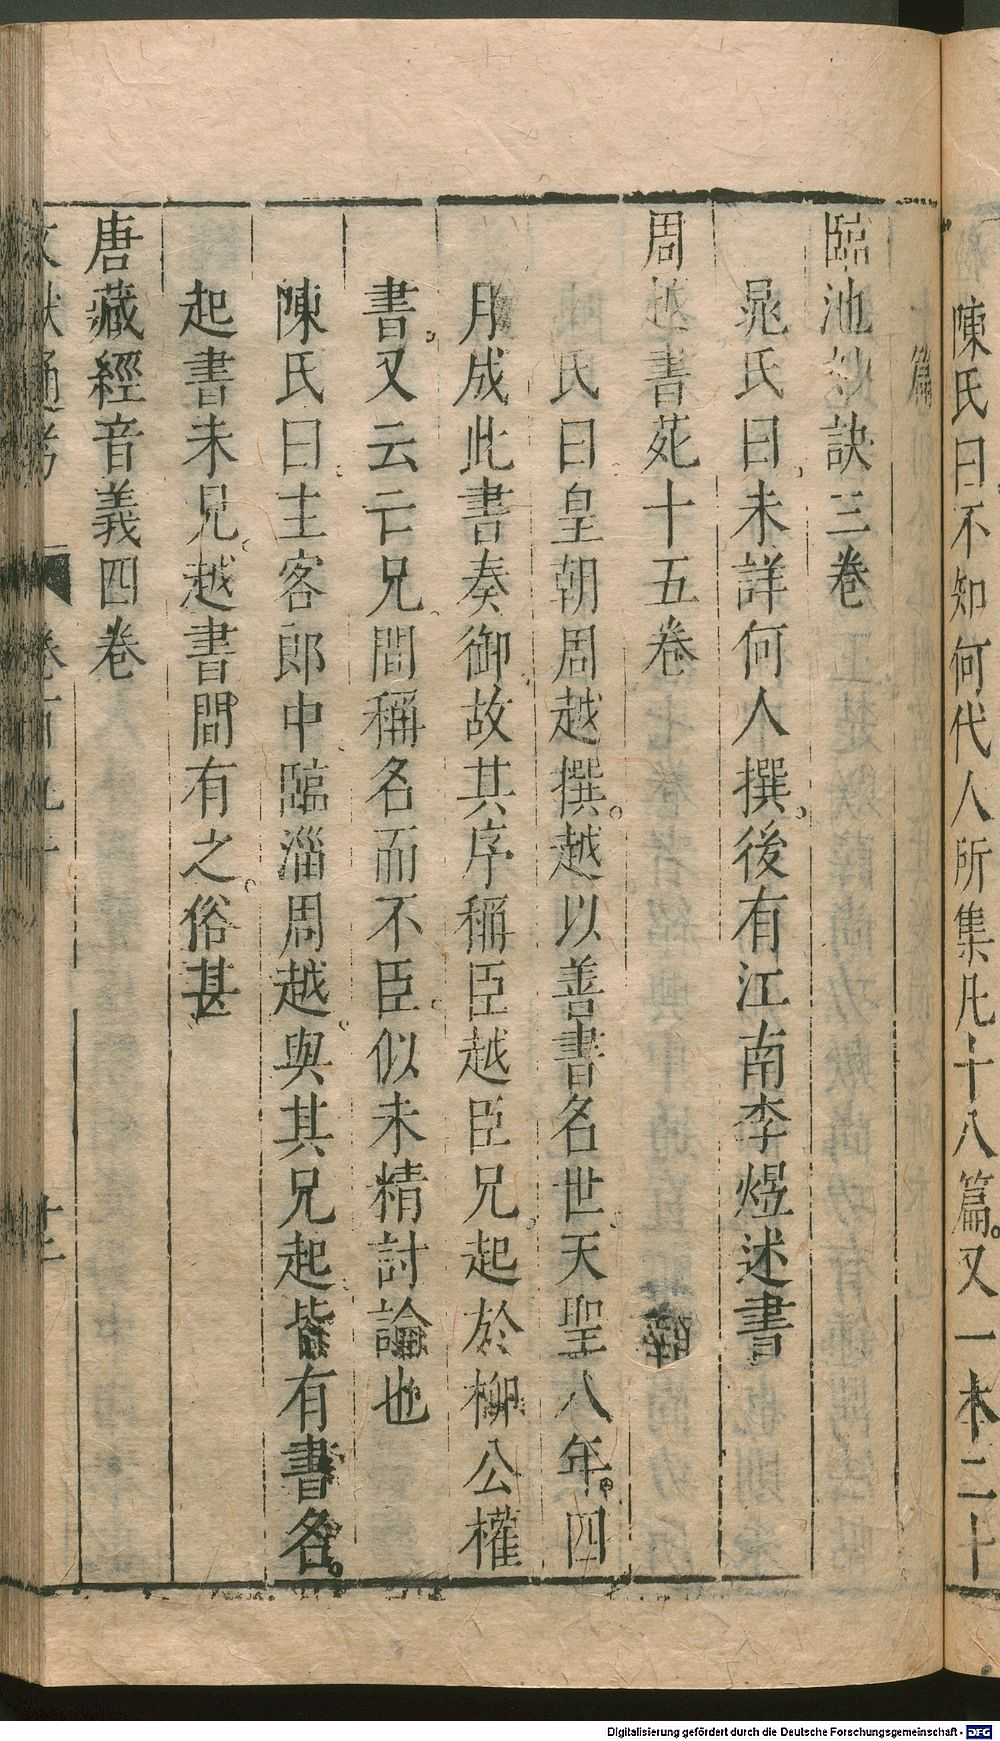 陳氏曰不知何代人所集凡十八篇又一本二十
篇
臨池妙訣三卷
晁氏曰未詳何人撰後有江南李煜述書
周越書苑十五卷
氏曰皇朝周越撰越以善書名世天聖八年四
月成此書奏御故其序稱臣越臣兄起於柳公權
書又云亡兄間稱名而不臣似未精討論也
陳氏曰主客郎中臨淄周越與其兄起皆有書名
起書未見越書間有之俗甚
唐藏經音義四卷
文獻通考 卷百九十
Digitalisierung gefördert durch die Deutsche Forschungsgemeinschaft - DFG